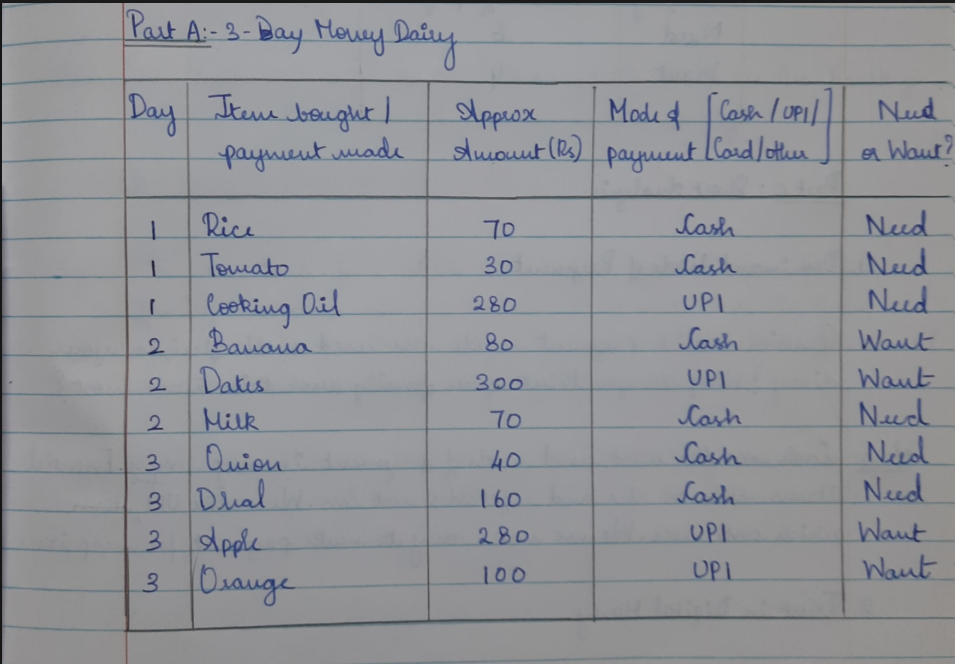 Part A:- 3-Day Money Dairy
Day Item bought / Approx Mode of [Cash / UPI / Need
payment made Amount (Rs) payment Card/other] or Want?
1 Rice 70 Cash Need
1 Tomato 30 Cash Need
1 Cooking Oil 280 UPI Need
2 Banana 80 Cash Want
2 Dates 300 UPI Want
2 Milk 70 Cash Need
3 Onion 40 Cash Need
3 Dhal 160 Cash Need
3 Apple 280 UPI Want
3 Orange 100 UPI Want